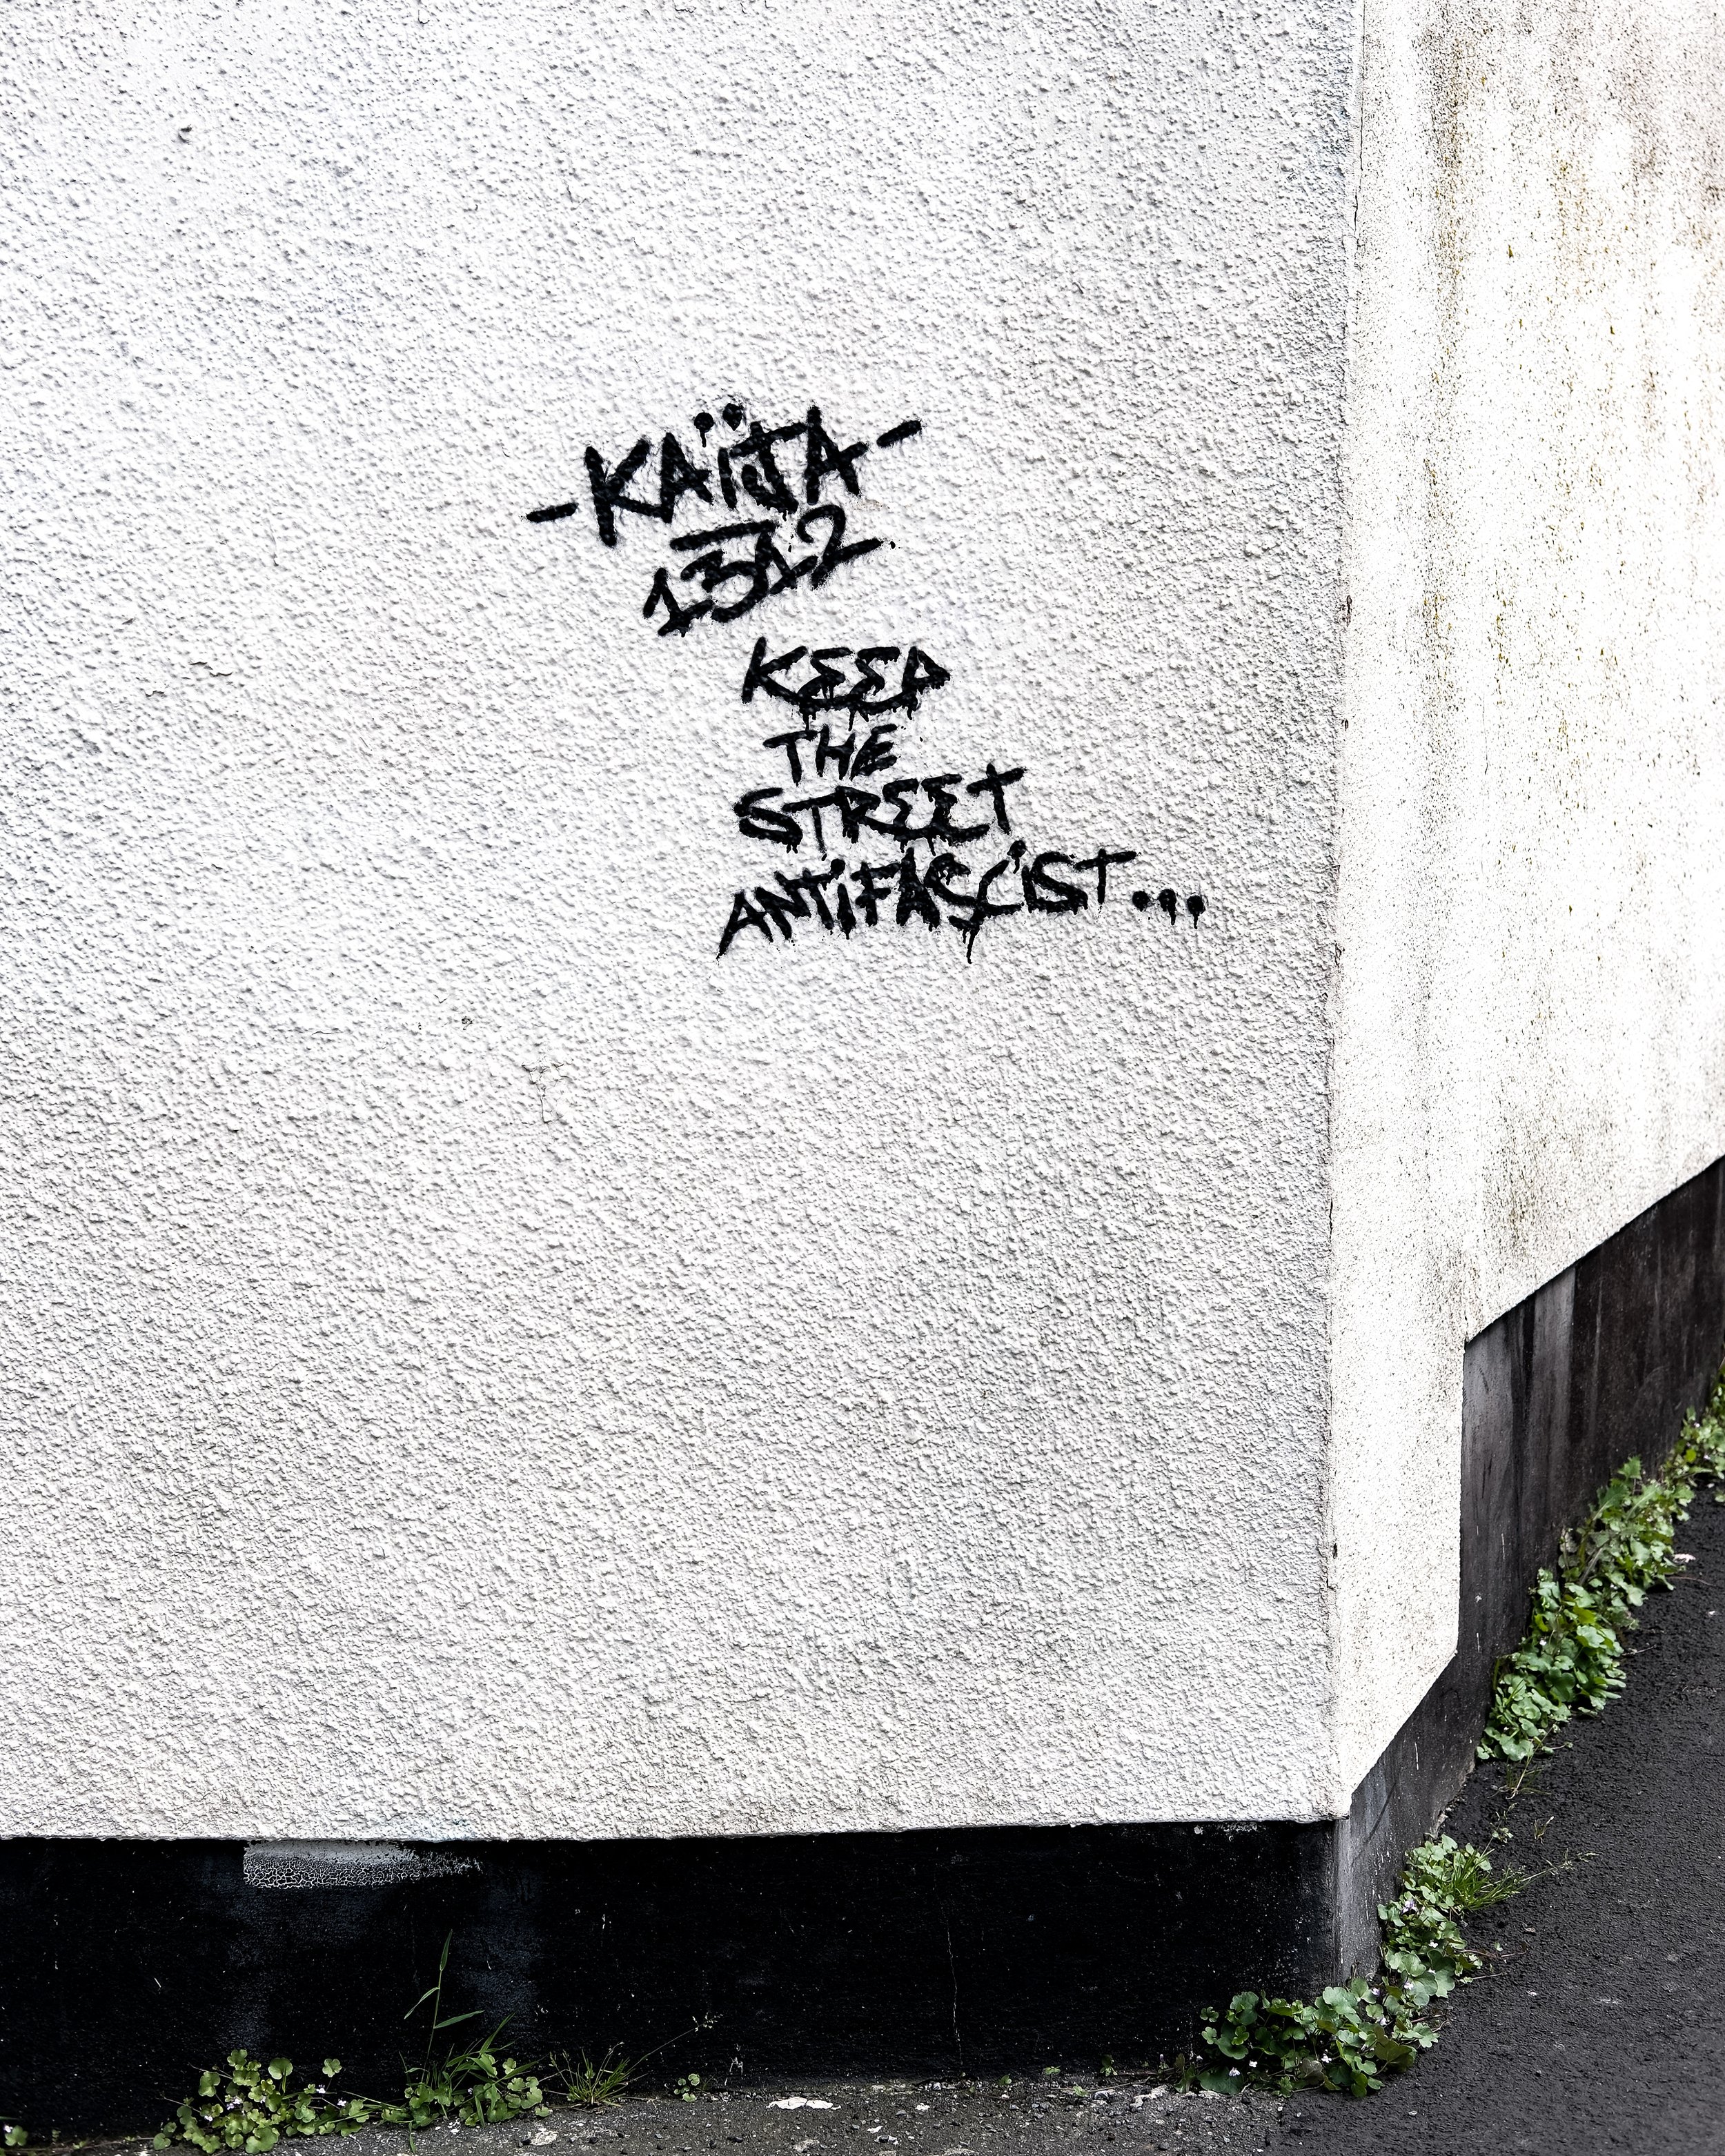 -KAÏJA-
1312
KEEP
THE
STREET
ANTIFASCIST...